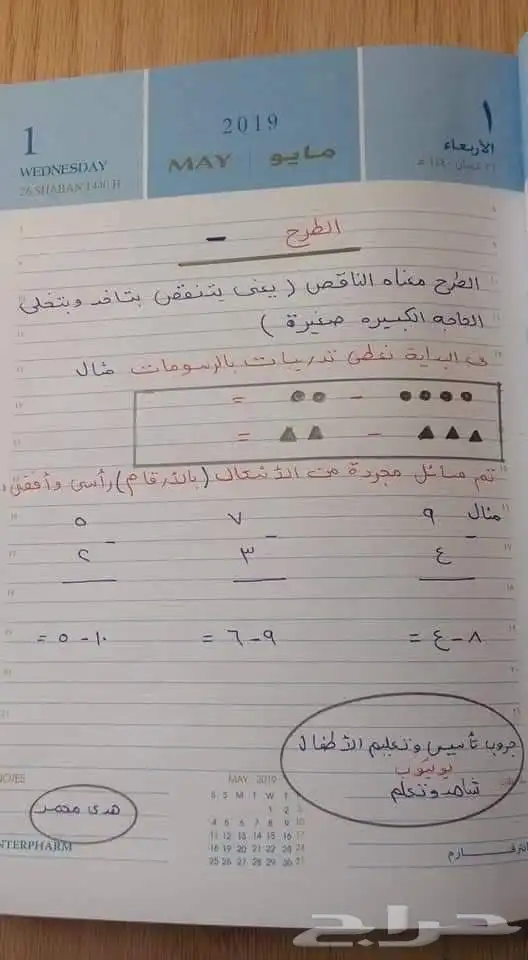 1
WEDNESDAY
26 SHABAN 1440 H
2019
MAY مايو
١
الأربعاء
الطرح -
الطرح معناه الناقص ( يعنى يتنقص بتاخد وبتخلى
الحاجه الكبيره صغيرة )
فى البداية نعطى تدريبات بالرسومات مثال
●●●● - ●● =
▲▲▲ - ▲▲ =
ثم مسائل مجردة من الأشكال (بالأرقام) رأسى وأفقى
مثال ٩ ٧ ٥
- - -
٤ ٣ ٢
٨ - ٤ = ٩ - ٦ = ١٠ - ٥ =
جروب تأسيس وتعليم الأطفال
يوتيوب
شاهد وتعلم
هدى محمد
NOTES
MAY 2019
S S M T W T F
1 2 3
4 5 6 7 8 9 10
11 12 13 14 15 16 17
18 19 20 21 22 23 24
25 26 27 28 29 30 31
INTERPHARM
انترفارم
حراج